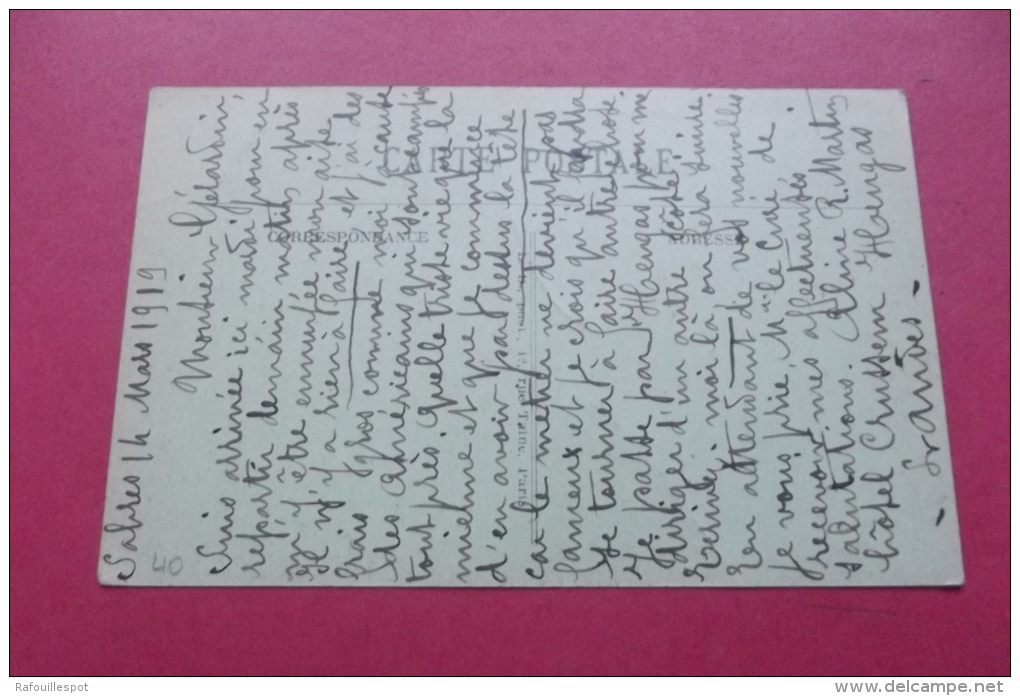 Sabres 14 Mars 1919
Monsieur Gélardin,
Suis arrivée ici mardi pour en
repartir demain matin après
m'être ennuyée mon aise.
Il n'y a rien à faire et j'ai des
frais gros comme moi à cause
des Américains qui sont campés
tout près. Quelle triste vie que la
mienne et que je commence
d'en avoir par dessus la tête
car le métier ne devient pas
fameux et je crois qu'il faudra
se tourner à faire autre chose.
Je passe par Morcenx pour me
diriger d'un autre côté,
Écrivez moi là on fera suivre.
En attendant de vos nouvelles
je vous prie, M. de
recevoir mes affectueuses
salutations. Aline R. Martin
hôtel Crussem
Landes
40
CARTE POSTALE
CORRESPONDANCE
ADRESSE
Rafouillespot
www.delcampe.net